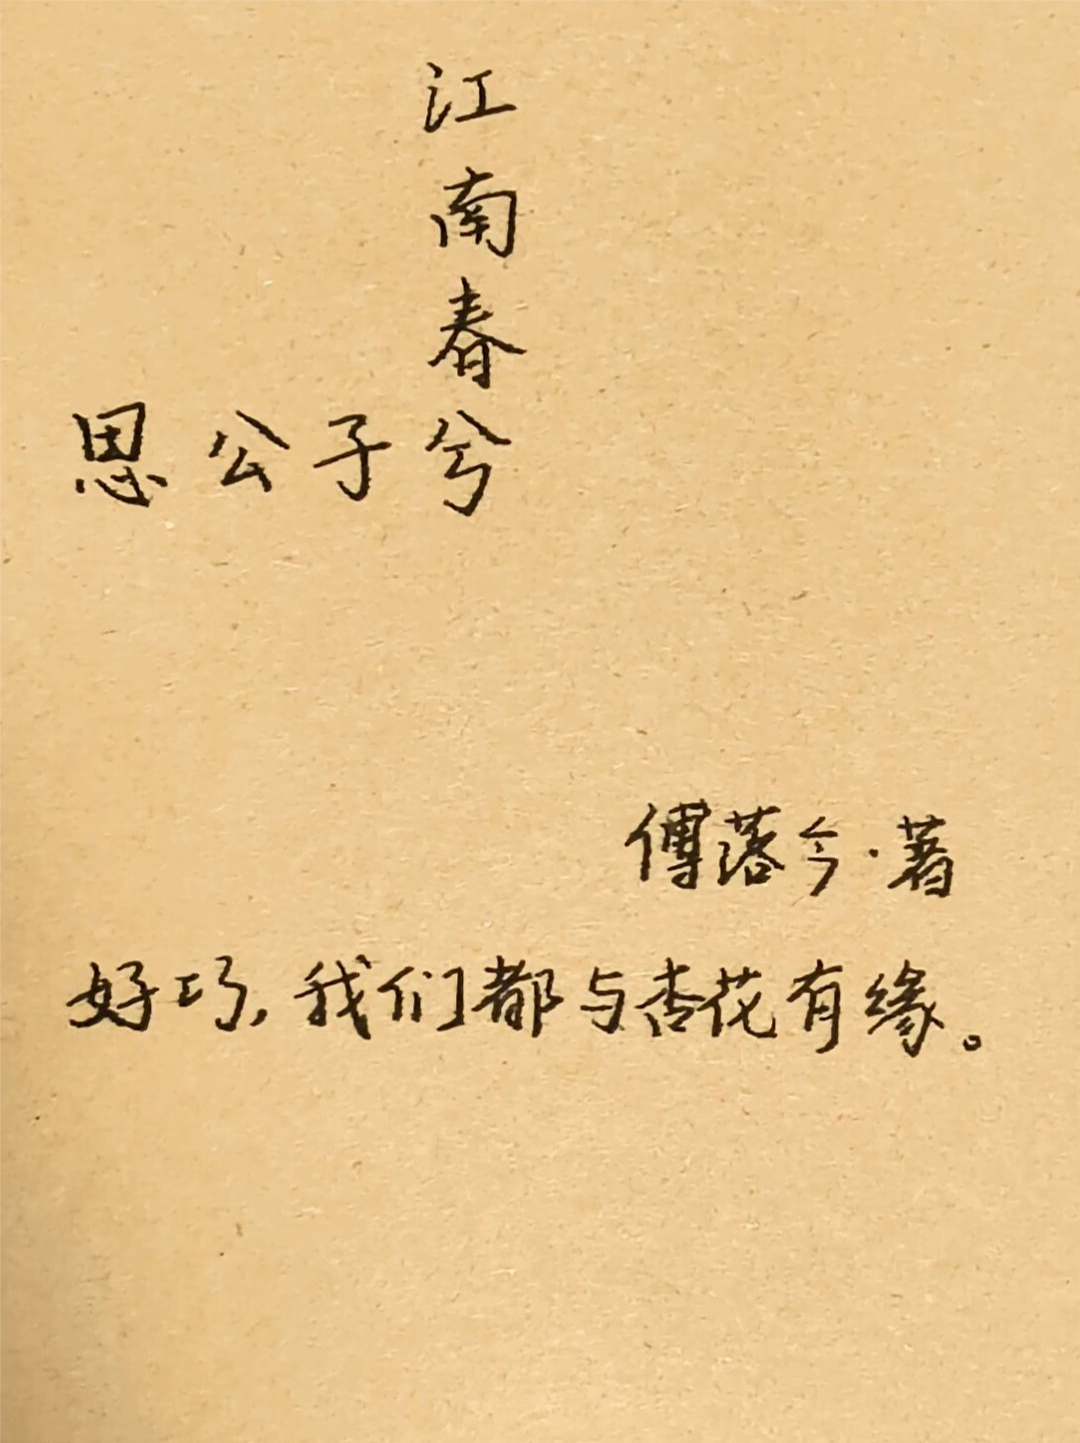 江南春
思公子兮
傅落今·著
好巧,我们都与杏花有缘。